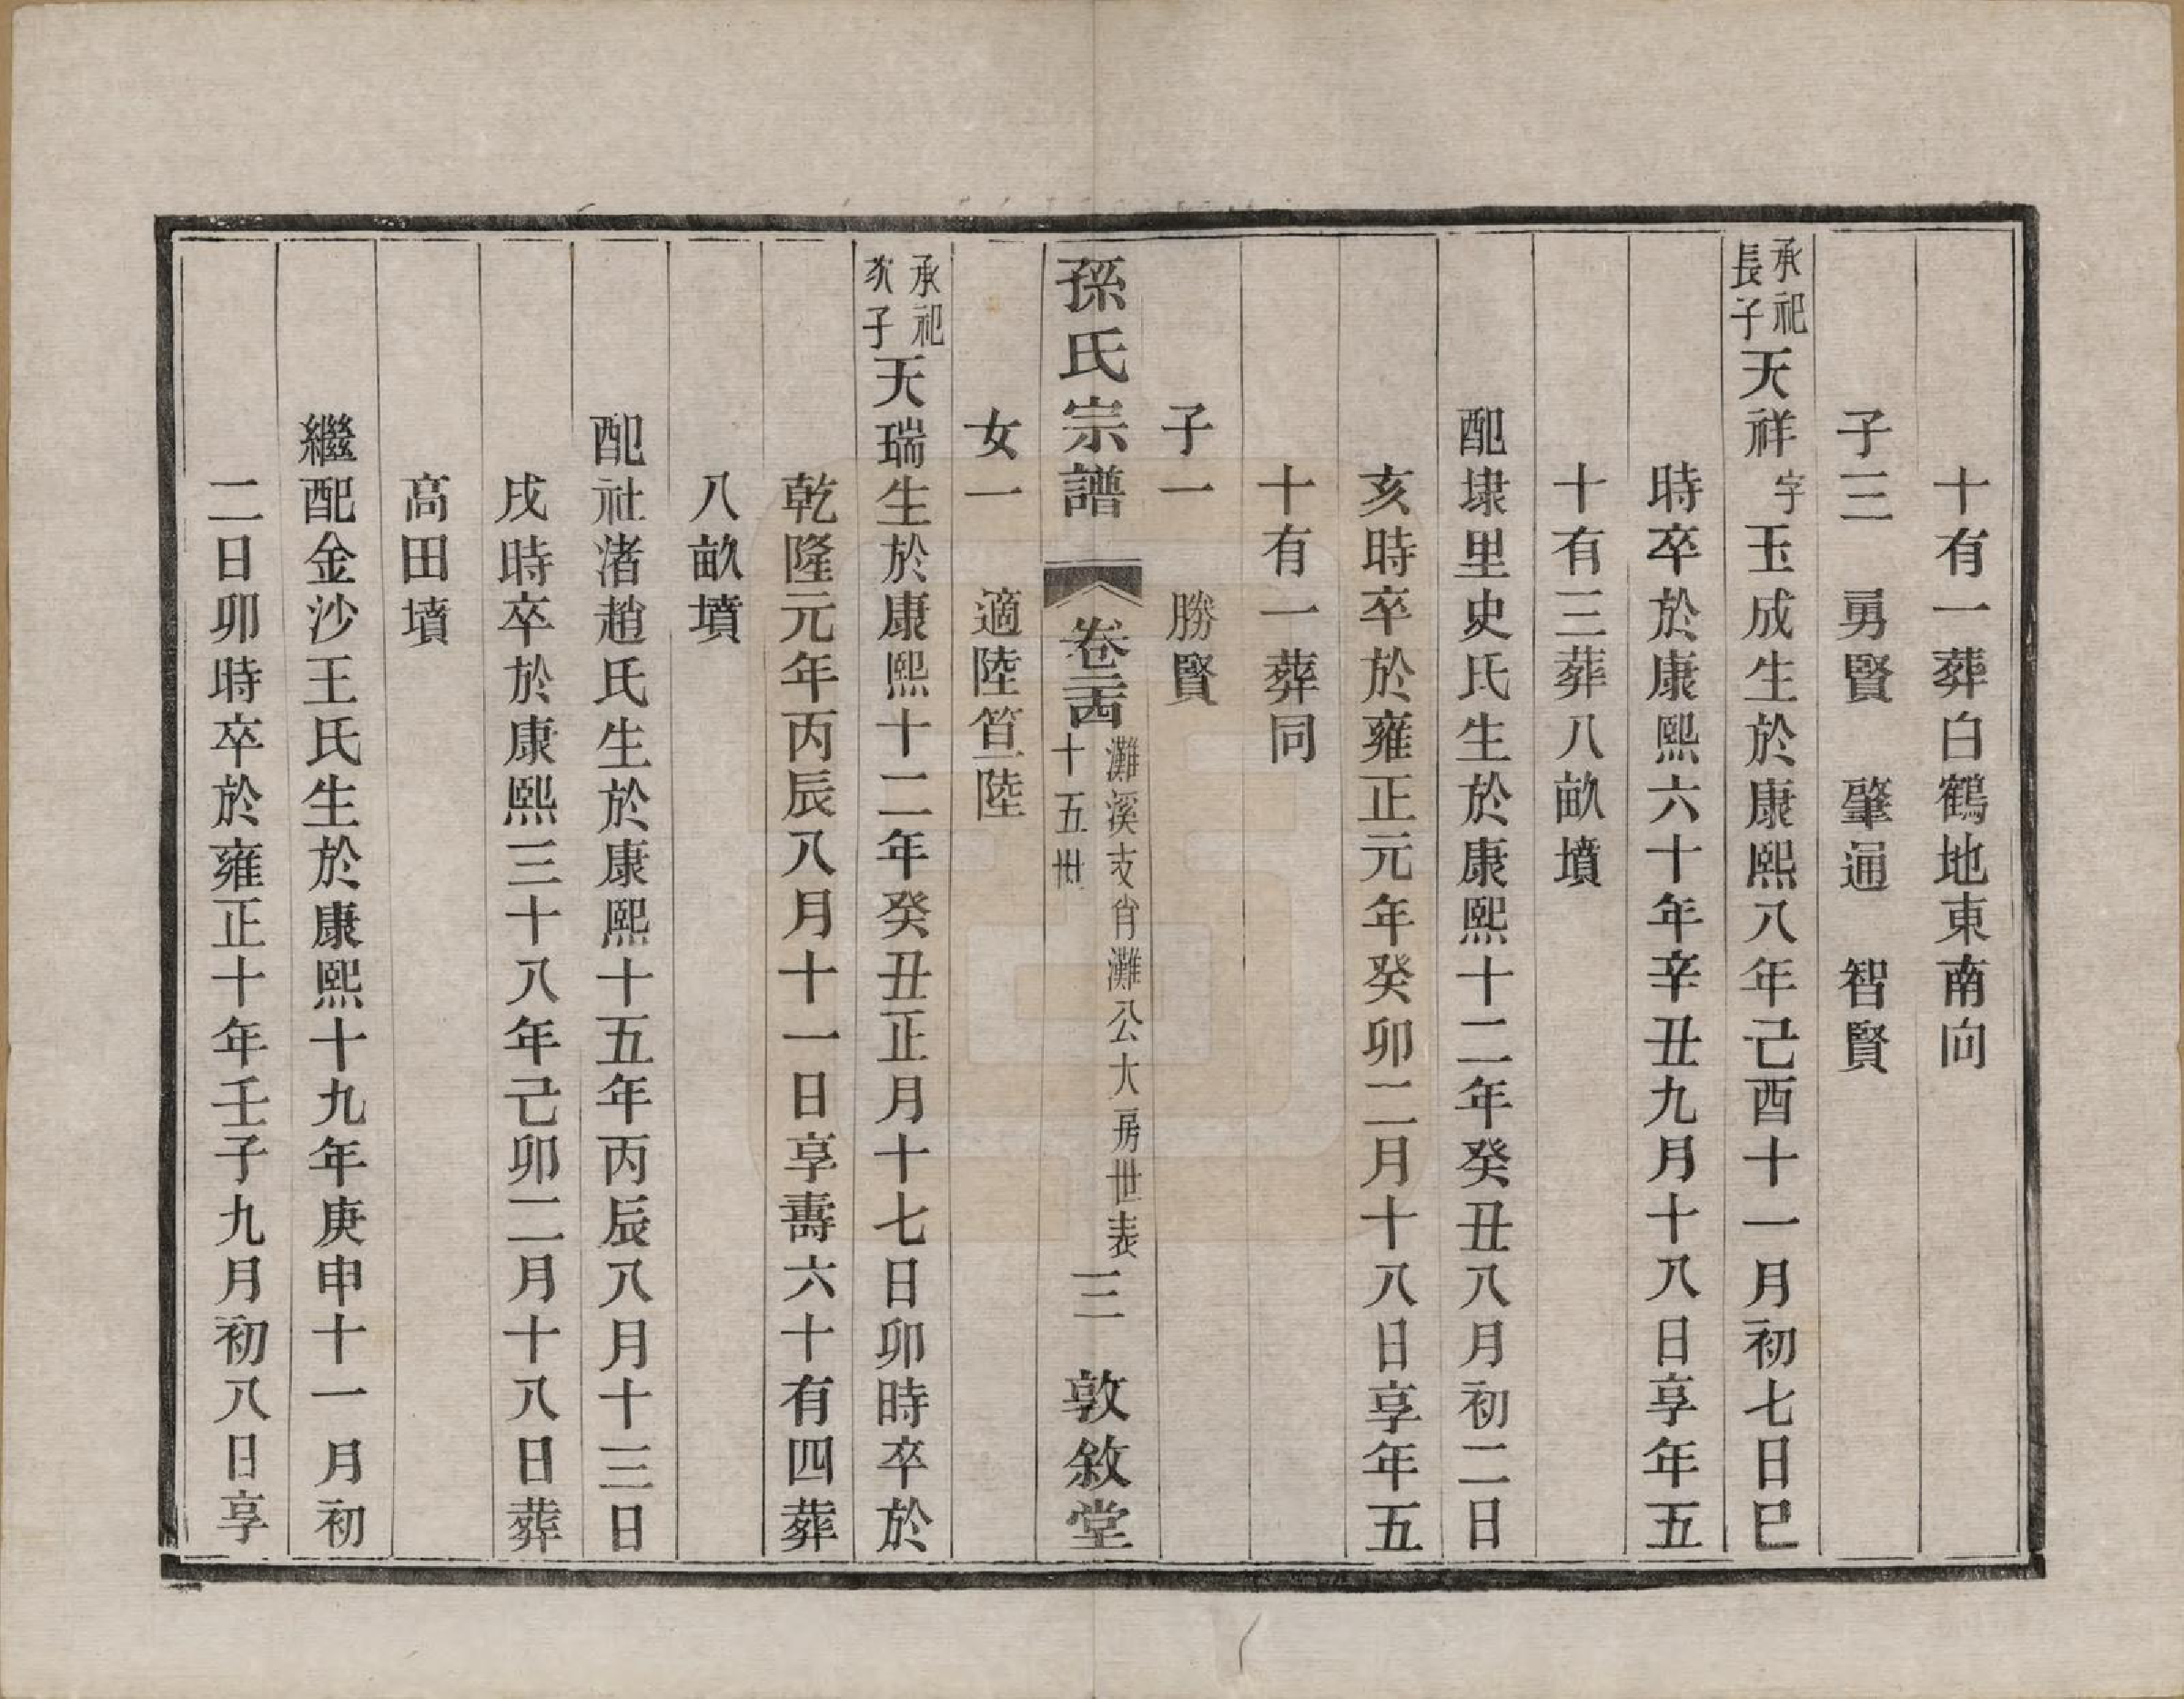 十有一葬白鶴地東南向
子三　勇賢　肇通　智賢
承祀長子天祥字玉成生於康熙八年己酉十一月初七日巳
時卒於康熙六十年辛丑九月十八日享年五
十有三葬八畝墳
配埭里史氏生於康熙十二年癸丑八月初二日
亥時卒於雍正元年癸卯二月十八日享年五
十有一葬同
子一　勝賢
孫氏宗譜　卷二十四　灘溪支肖灘公大房世表　十五卅　三　敦敘堂
女一　適陸笪陸
承祀次子天瑞生於康熙十二年癸丑正月十七日卯時卒於
乾隆元年丙辰八月十一日享壽六十有四葬
八畝墳
配社渚趙氏生於康熙十五年丙辰八月十三日
戌時卒於康熙三十八年己卯二月十八日葬
高田墳
繼配金沙王氏生於康熙十九年庚申十一月初
二日卯時卒於雍正十年壬子九月初八日享